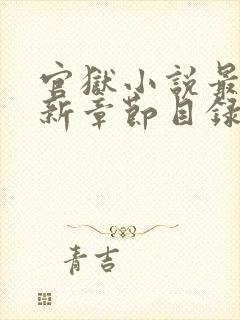 官獄小說最
新章節目錄
青吉